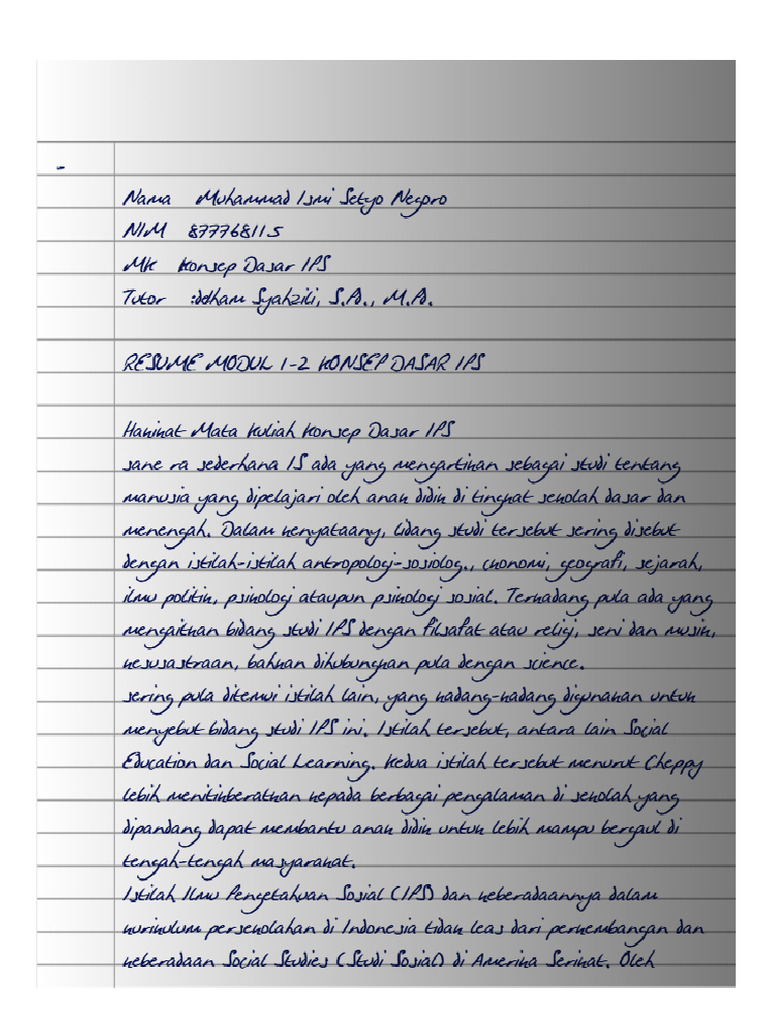 -
Nama Muhammad Ismi Setyo Negoro
NIM 877768115
MK Konsep Dasar IPS
Tutor :ddham Syahzili, S.Pd., M.Pd.
RESUME MODUL 1-2 KONSEP DASAR IPS
Hakikat Mata Kuliah Konsep Dasar IPS
sane ra sederhana IS ada yang mengartikan sebagai studi tentang
manusia yang dipelajari oleh anak didik di tingkat sekolah dasar dan
menengah. Dalam kenyataany, bidang studi tersebut sering disebut
dengan istilah-istilah antropologi-sosiolog., ekonomi, geografi, sejarah,
ilmu politik, psikologi ataupun psikologi sosial. Terkadang pula ada yang
mengaitkan bidang studi IPS dengan filsafat atau religi, seni dan musik,
kesusastraan, bahkan dihubungkan pula dengan science.
sering pula ditemui istilah lain, yang kadang-kadang digunakan untuk
menyebut bidang studi IPS ini. Istilah tersebut, antara lain Social
Education dan Social Learning. Kedua istilah tersebut menurut Cheppy
lebih menitikberatkan kepada berbagai pengalaman di sekolah yang
dipandang dapat membantu anak didik untuk lebih mampu bergaul di
tengah-tengah masyarakat.
Istilah Ilmu Pengetahuan Sosial (IPS) dan keberadaannya dalam
kurikulum persekolahan di Indonesia tidak leas dari perkembangan dan
keberadaan Social Studies (Studi Sosial) di Amerika Serikat. Oleh